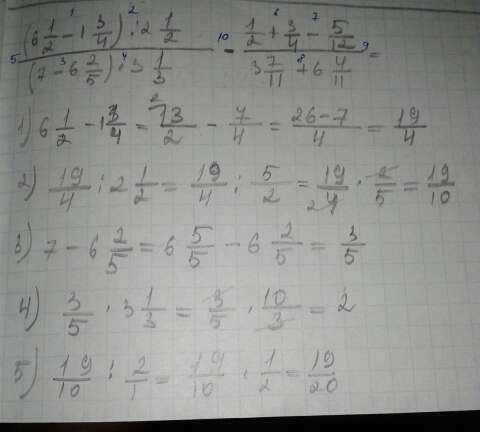 5 (6 1/2 -¹ 1 3/4) :² 2 1/2 / (7 -³ 6 2/5) ·⁴ 3 1/3 -¹⁰ 1/2 +⁶ 3/4 -⁷ 5/12 / 3 7/11 +⁸ 6 4/11 ⁹ =
1) 6 1/2 - 1 3/4 = ²13/2 - 7/4 = 26-7/4 = 19/4
2) 19/4 : 2 1/2 = 19/4 : 5/2 = 19/₂4 · 2/5 = 19/10
3) 7 - 6 2/5 = 6 5/5 - 6 2/5 = 3/5
4) 3/5 · 3 1/3 = 3/5 · 10/3 = 2
5) 19/10 : 2/1 = 19/10 · 1/2 = 19/20